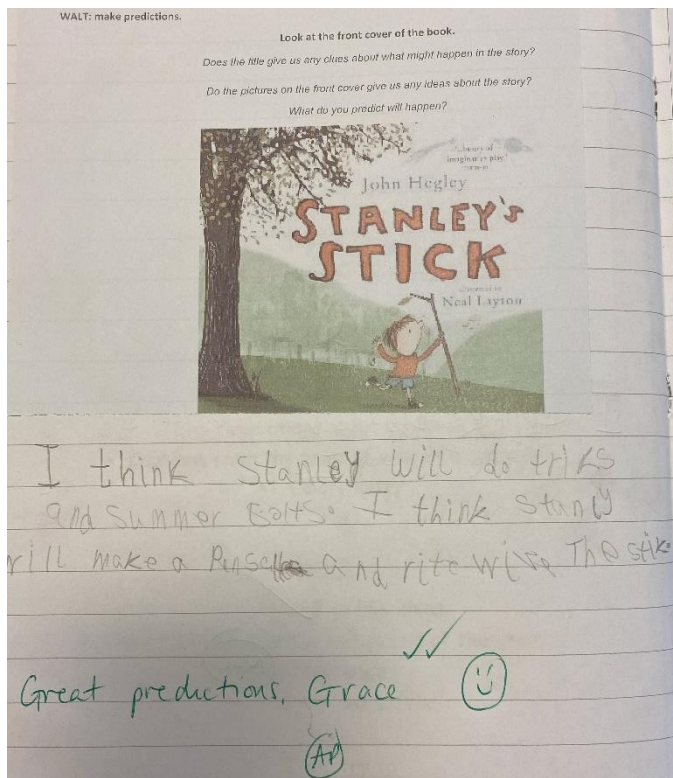 WALT: make predictions.
Look at the front cover of the book.
Does the title give us any clues about what might happen in the story?
Do the pictures on the front cover give us any ideas about the story?
What do you predict will happen?
John Hegley
STANLEY'S
STICK
Neal Layton
I think Stanley will do triks
and Summer Solts. I think Stanly
will make a and rite The stik.
Great predictions, Grace
AP